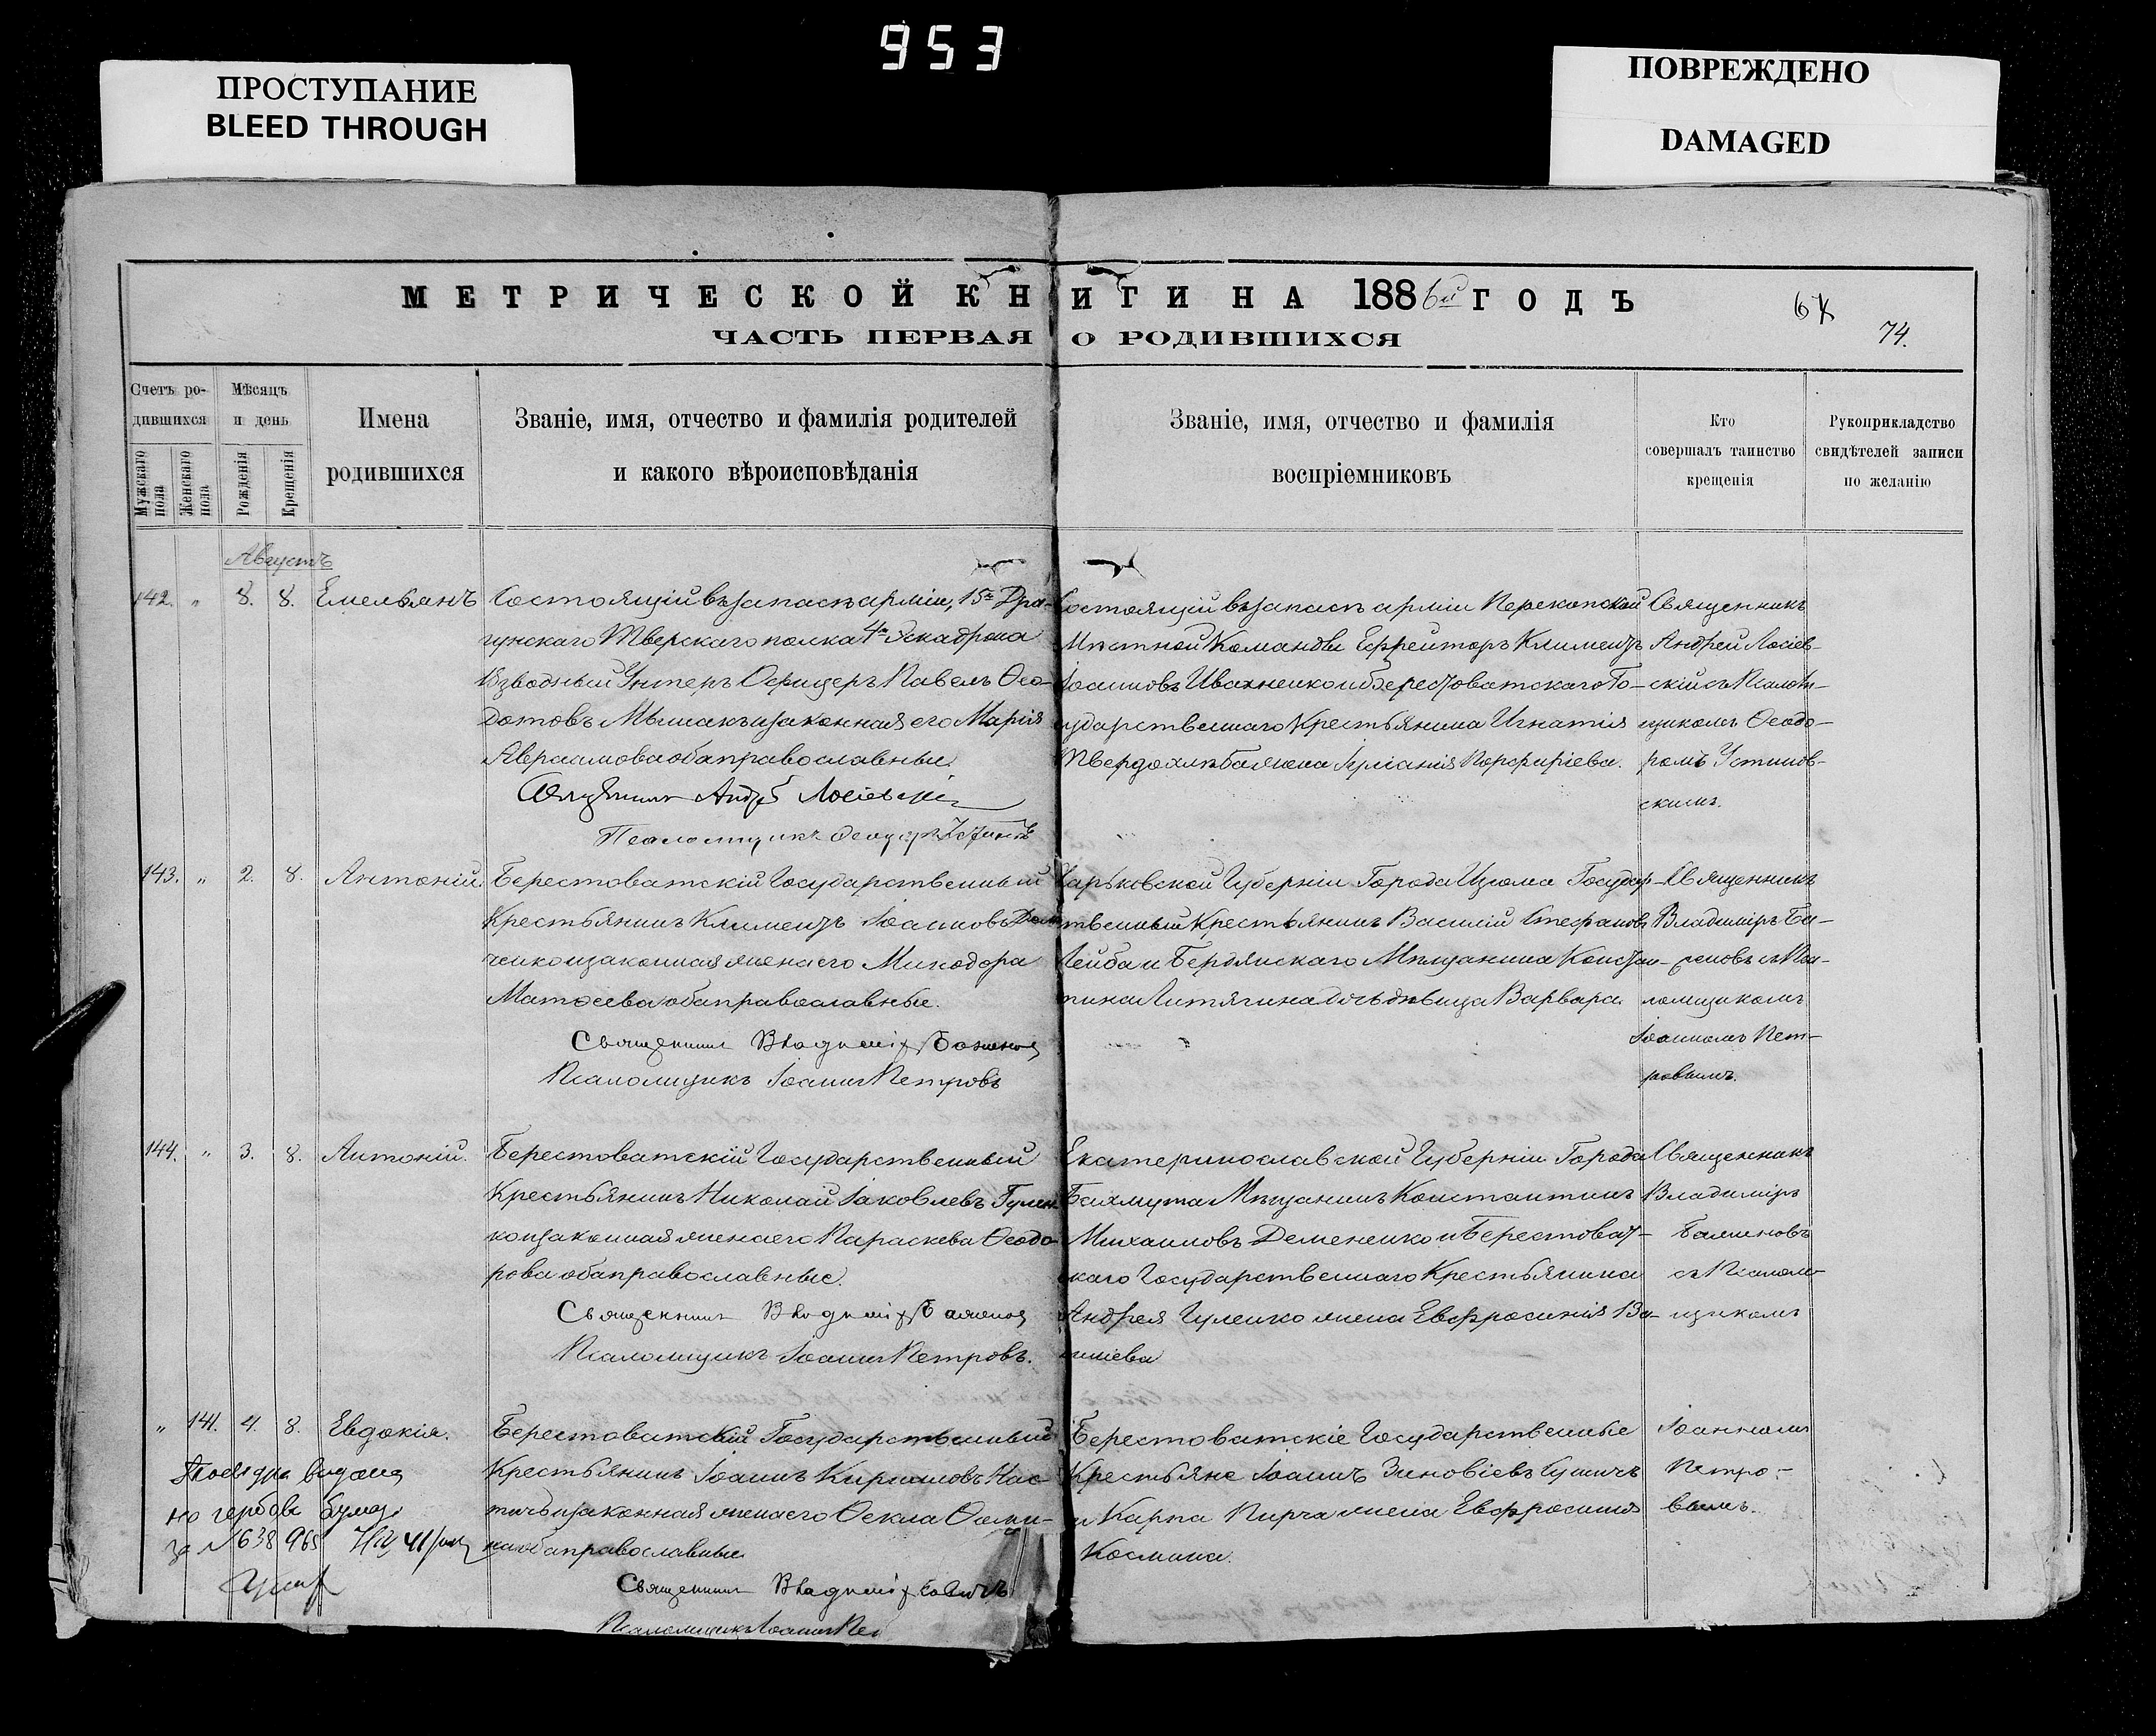 953
ПРОСТУПАНИЕ
BLEED THROUGH
ПОВРЕЖДЕНО
DAMAGED
МЕТРИЧЕСКОЙ КНИГИ НА 1886й ГОДЪ
74.
ЧАСТЬ ПЕРВАЯ О РОДИВШИХСЯ
Счетъ ро-
дившихся
Мужскаго пола
Женскаго пола
Мѣсяцъ
и день
Рожденія
Крещенія
Имена
родившихся
Званіе, имя, отчество и фамилія родителей
и какого вѣроисповѣданія
Званіе, имя, отчество и фамилія
воспріемниковъ
Кто
совершалъ таинство
крещенія
Рукоприкладство
свидѣтелей записи
по желанію
Августъ
142. " 8. 8. Емельянъ
Состоящій въ запасѣ арміи, 15го Дра-
гунскаго Тверскаго полка 4го Эскадрона
Взводный Унтеръ Офицеръ Павелъ Ѳео-
дотовъ и законная его Марія
Авраамова оба православные.
Священникъ Андрей Лосіевскій
Псаломщикъ
Состоящій въ запасѣ арміи Перекопской
Мѣстной Команды Ефрейторъ Климентъ
Іоанновъ Ивахненко и Берестоватскаго Го-
сударственнаго Крестьянина Игнатія
Твердохлѣба жена Іуліанія Порфиріева.
Священникъ
Андрей Лосіев-
скій съ Псалом-
щикомъ Ѳеодо-
ромъ Устинов-
скимъ.
143. " 2. 8. Антоній.
Берестоватскій Государственный
Крестьянинъ Климентъ Іоанновъ
ченко и законная жена его Минодора
Матѳеева оба православные.
Священникъ Владиміръ Баженовъ
Псаломщикъ Іоаннъ Петровъ
Харьковской Губерніи Города Изюма Государ-
ственный Крестьянинъ Василій Стефановъ
Лейба и Бердянскаго Мѣщанина Констан-
тина Литягина дочь дѣвица Варвара.
Священникъ
Владиміръ Ба-
женовъ съ Пса-
ломщикомъ
Іоанномъ Пет-
ровымъ.
144. " 3. 8. Антоній.
Берестоватскій Государственный
Крестьянинъ Николай Іаковлевъ Гулен-
ко и законная жена его Параскева Ѳеодо-
рова оба православные.
Священникъ Владиміръ Баженовъ
Псаломщикъ Іоаннъ Петровъ.
Екатеринославской Губерніи Города
Бахмута Мѣщанинъ Константинъ
Михаиловъ Демененко и Берестоват-
скаго Государственнаго Крестьянина
Андрея Гуленко жена Евфросинія Ва-
силіева
Священникъ
Владиміръ
Баженовъ
съ Псалом-
щикомъ
" 141. 4. 8. Евдокія.
Берестоватскій Государственный
Крестьянинъ Іоаннъ Кирилловъ Нас-
тичъ и законная жена его Ѳекла Ѳоми-
на оба православные.
Священникъ Владиміръ
Псаломщикъ Іоаннъ Пе
Берестоватскіе Государственные
Крестьяне Іоаннъ Зиновіевъ
и Карпа Пирча жена Евфросинія
Космина.
Іоанномъ
Петро-
вымъ.
выдана
на гербов. бумаг.
за № 638965